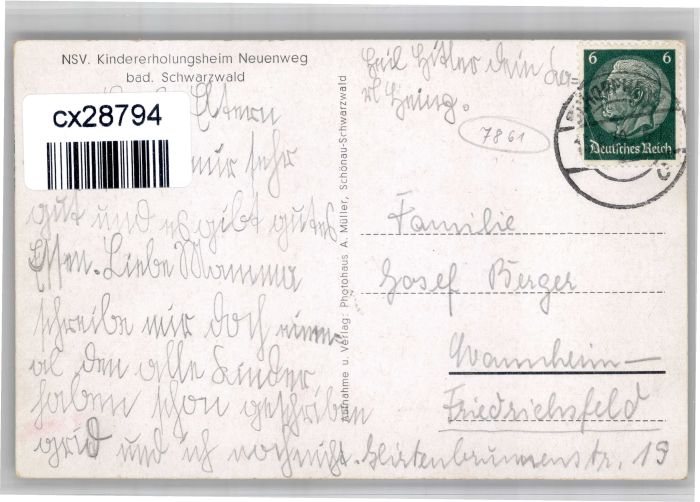 NSV. Kindererholungsheim Neuenweg
bad. Schwarzwald
cx28794
Eltern
mir sehr
gut und es gibt gutes
Essen. Liebe Mamma
schreibe mir doch einm-
al den alle Kinder
haben schon geschriben
grid und ich noch nicht.
Heil Hitler dein
Heinz.
7861
6 6
Deutsches Reich
Aufnahme u. Verlag: Photohaus A. Müller, Schönau-Schwarzwald
Familie
Josef Berger
Mannheim-
Friedrichsfeld
Hirtenbrunnenstr. 19